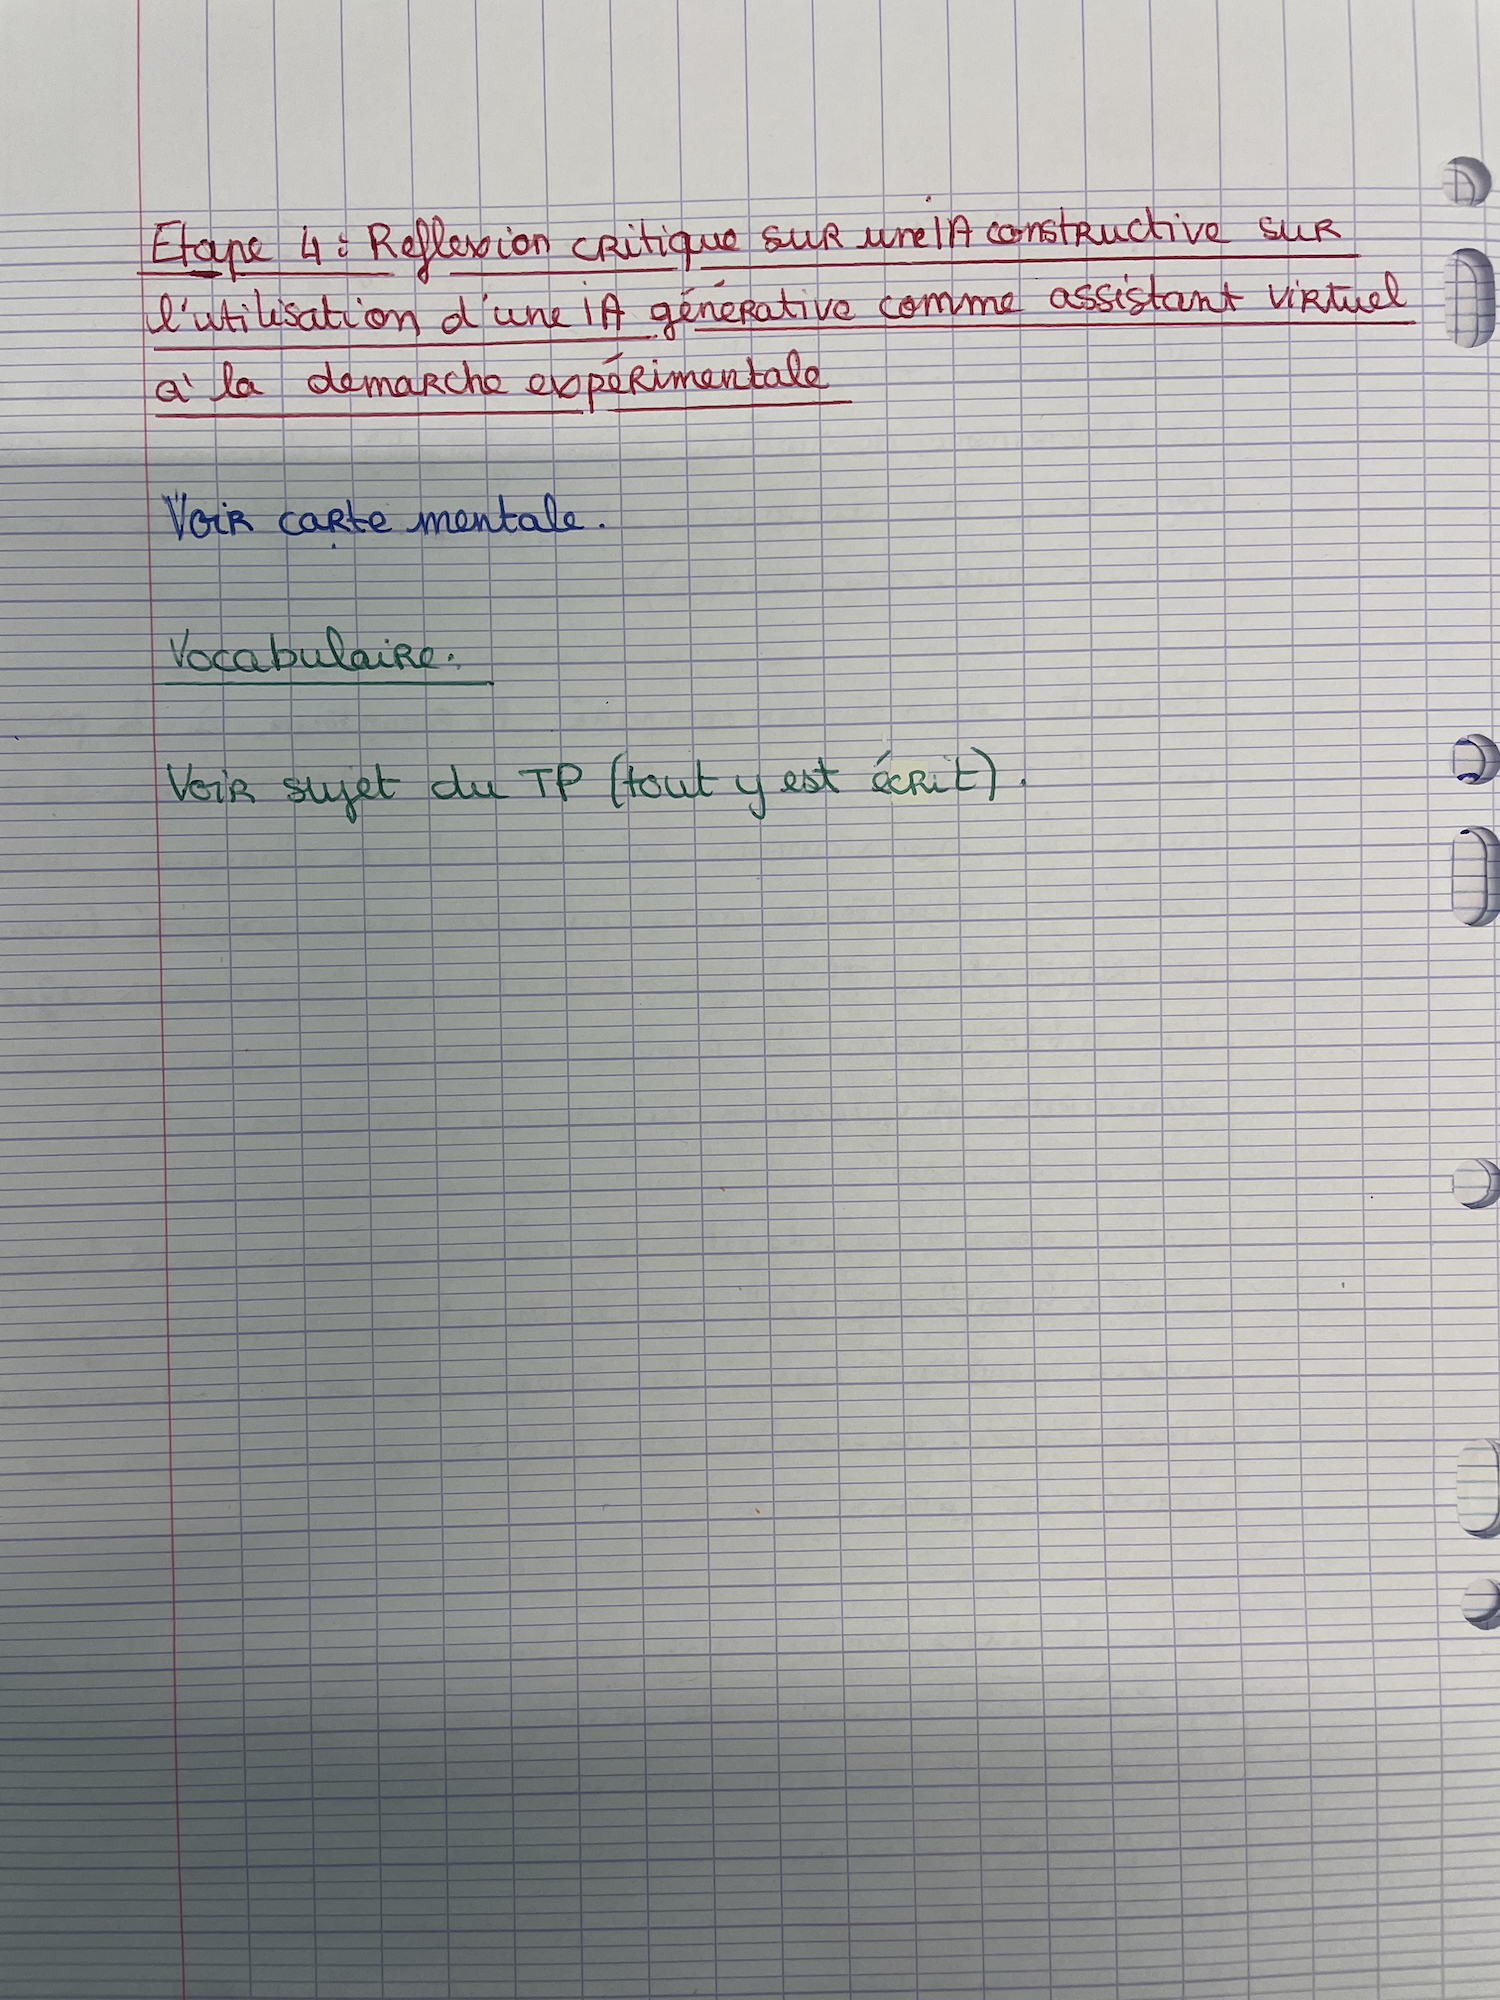 Etape 4 : Reflexion critique sur une IA constructive sur
l'utilisation d'une IA générative comme assistant virtuel
à la demarche expérimentale
Voir carte mentale.
Vocabulaire.
Voir sujet du TP (tout y est écrit).